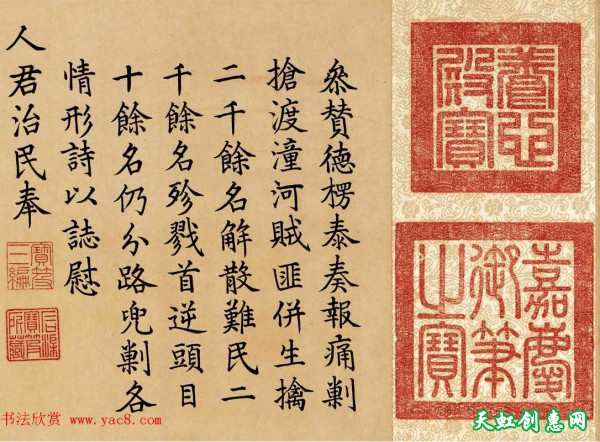 養心殿寶
嘉慶御筆之寶
叅賛德楞泰奏報痛剿
搶渡潼河賊匪併生擒
二千餘名解散難民二
千餘名殄戮首逆頭目
十餘名仍分路兜剿各
情形詩以誌慰
人君治民奉
寶笈三編
石渠寶笈所藏
书法欣赏 www.yac8.com
天虹创意网